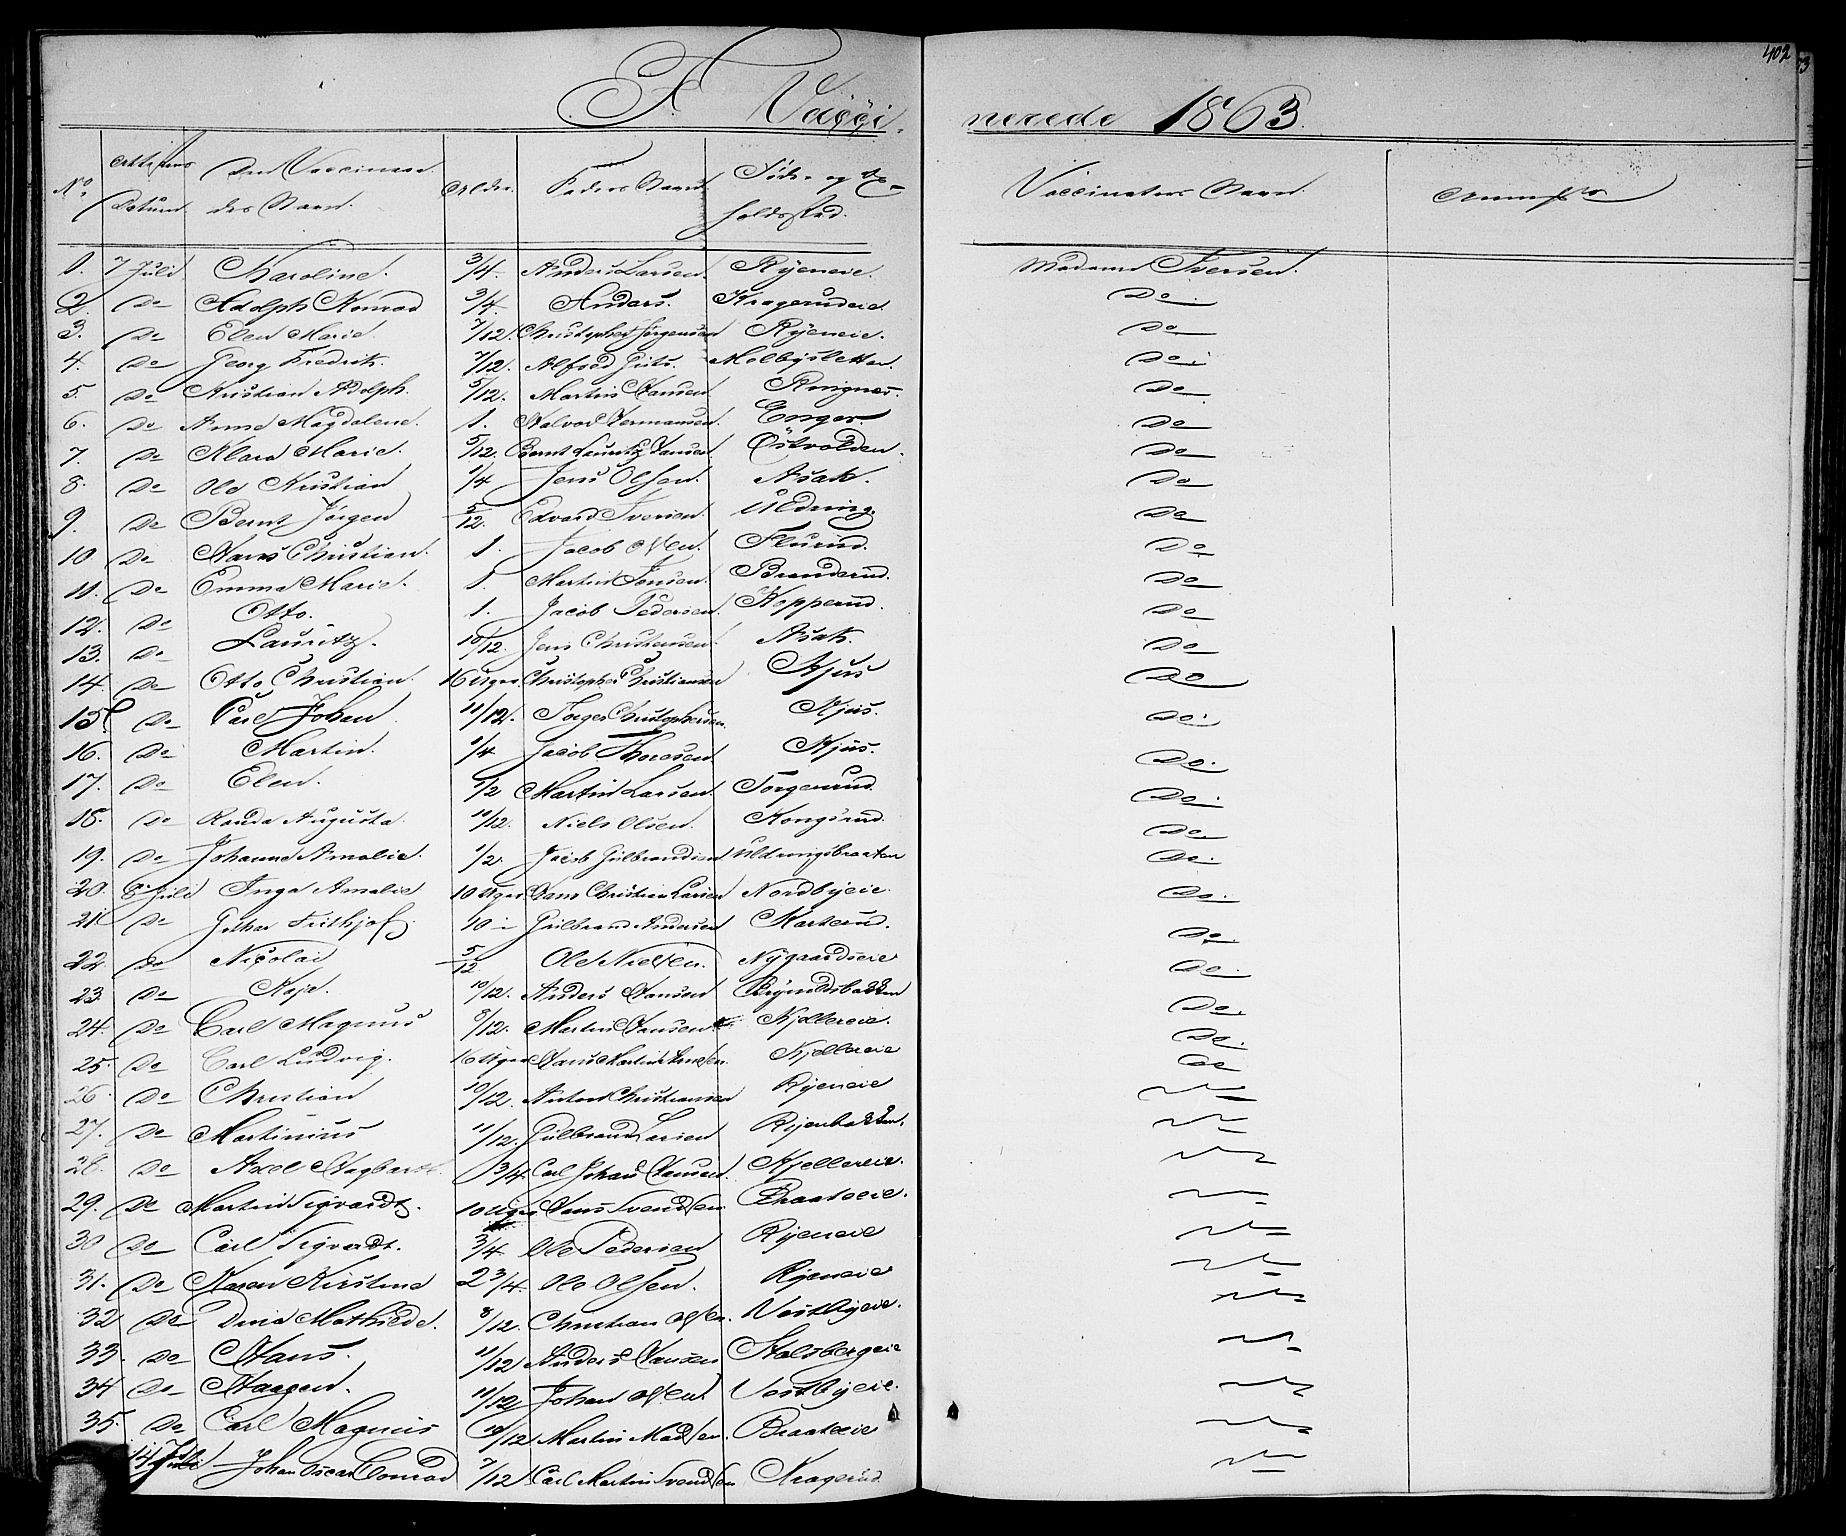 402
F. Vacci- nerede 1863.
No. Attestens Datum. Den Vaccineredes Navn. Alder. Faders Navn. Føde- og Opholdssted. Vaccinators Navn. Anmk.
1. 7 Juli Karoline. 3/4. Anders Larsen. Ryeneie. Madame Iversen.
2. Do Adolph Konrad 3/4. Anders. Kragerudeie Do
3. Do Elen Marie. 7/12. Christopher Jørgensen Ryeneie. Do
4. Do Georg Fredrik. 7/12. Alfred Molbysletten. Do
5. Do Kristian Adolph. 5/12. Martin Hansen Ringnes. Do
6. Do Anne Magdalene. 1. Halvor Hermansen. Enger. Do
7. Do Klara Marie. 5/12. Bernt Lauritz Hansen. Østvolden. Do
8. Do Ole Kristian 1/4 Jens Olsen. Asak. Do
9. Do Bernt Jørgen 5/12. Edvard Iversen. Uldring. Do
10 Do Hans Christian. 1. Jacob Olsen. Flurud. Do
11. Do Emma Marie. 1. Martin Jensen. Branderud. Do
12. Do Otto. 1. Jacob Pedersen. Kopperud. Do
13. Do Lauritz. 10/12. Jens Christensen. Asak. Do
14. Do Otto Christian. 16 Uger. Christopher Christiansen Kjus Do
15. Do Carl Johan 11/12. Torger Christophersen. Kjus. Do
16. Do Martin. 1/4 Jacob Thoresen Kjus. Do.
17. Do Elen. 1/2 Martin Larsen. Torgerud. Do.
18. Do Randa Augusta. 11/12. Niels Olsen. Kongsrud. Do
19. Do Johanne Amalie. 1/2. Jacob Gulbrandsen Uldringsbraaten Do.
20. 8 Juli Inga Amalie 10 Uger Hans Christian Larsen Nordbyeie. Do.
21 Do Frithjof. 40 Gulbrand Andersen Karterud. Do
22 Do Nicolai 5/12 Ole Nielsen. Nygaardseie Do.
23. Do Kaja. 10/12. Anders Hansen Do.
24. Do Carl Magnus 8/12. Martin Hansen Kjellereie. Do.
25. Do Carl Ludvig. 16 Uger Hans Martin Kjellereie Do
26. Do Christian 10/12. Anton Christiansen Ryeneie
27. Do Martinius 11/12. Gulbrand Larsen Ryenbakken.
28. Do Axel Hagbart. 3/4. Carl Johan Hansen. Kjellereie.
29. Do Martin Sigvardt. 10 Uger Hans Svendsen Braateeie.
30 Do Carl Sigvardt. 3/4 Ole Pedersen Ryeneie
31. Do Karen Kirstine 2 3/4. Ole Olsen. Ryeneie
32 Do Mathilde. 8/12. Christian Olsen. Vestbyeie.
33. Do Hans. 11/12 Anders Hansen Stalsbergeie
34 Do Haagen. 11/12 Johan Olsen Vestbyeie.
35. Do Carl Magnus 10/12 Martin Madsen. Braateeie
14 Juli Johan Oscar Conrad 7/12 Carl Martin Svendsen Kragerud.